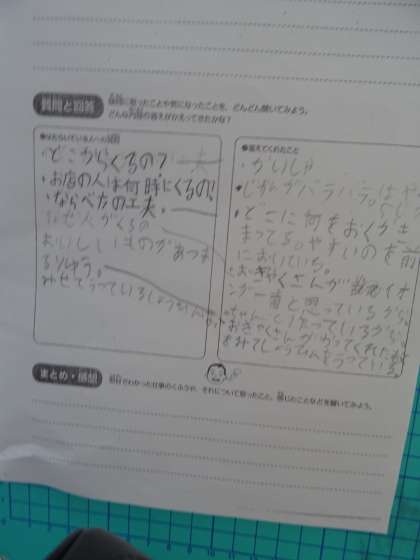 質問と回答
疑問に思ったことや気になったことを、どんどん聞いてみよう。
どんな内容の答えがかえってきたかな？
●はたらいている人への質問
・どこからくるの？
・お店の人は何時にくるの？
・ならべ方の工夫。
なぜ人がくるの
おいしいものがあつま
るりゆう。
みせでうっている
●答えてくれたこと
・かいしゃ
・じかんがバラバラ。はや
・どこに何をおくかき
まってる。やすいのを前
においている。
・おきゃくさんが
ンが一番と思っているから
ちゃんとうたっているから。
おきゃくさんがかってくれたもの
をみて
うっている
まとめ・感想
取材でわかった仕事のくふうや、それについて思ったこと、感じたことなどを書いてみよう。